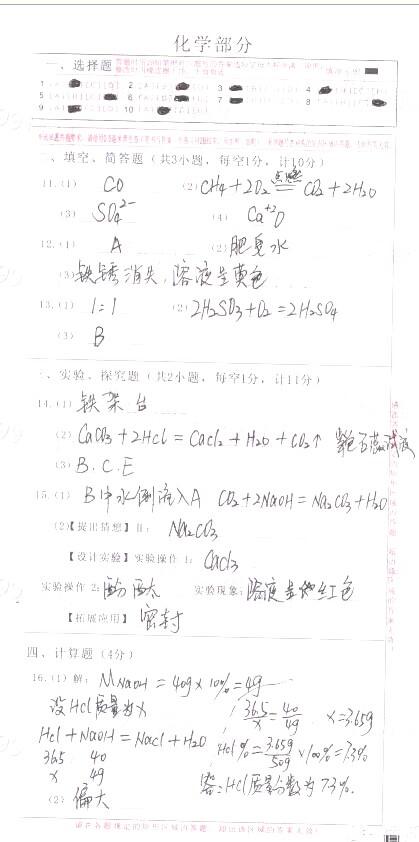 化学部分
一、选择题
二、填空、简答题（共3小题，每空1分，计10分）
11.(1) CO (2) CH4+2O2 点燃 = CO2+2H2O
(3) SO4 2- (4) Ca +2 O
12.(1) A (2) 肥皂水
(3) 铁锈消失，溶液呈黄色
13.(1) 1:1 (2) 2H2SO3+O2=2H2SO4
(3) B
、实验、探究题（共2小题，每空1分，计11分）
14.(1) 铁架台
(2) CaCO3+2HCl=CaCl2+H2O+CO2↑ 紫色石蕊试液
(3) B.C.E
15.(1) B中水倒流入A CO2+2NaOH=Na2CO3+H2O
(2)【提出猜想】II: Na2CO3
【设计实验】实验操作1: CaCl3
实验操作2: 酚酞 实验现象: 溶液呈红色
【拓展应用】 密封
四、计算题（4分）
16.(1) 解: MNaOH=40g×10%=4g
设HCl质量为X
36.5/X=40/4g X=3.65g
HCl+NaOH=NaCl+H2O
HCl%=3.65g/50g×100%=7.3%
36.5 40
X 4g
答:HCl质量分数为7.3%.
(2) 偏大
请在各题规定的矩形区域内答题，超出该区域的答案无效！